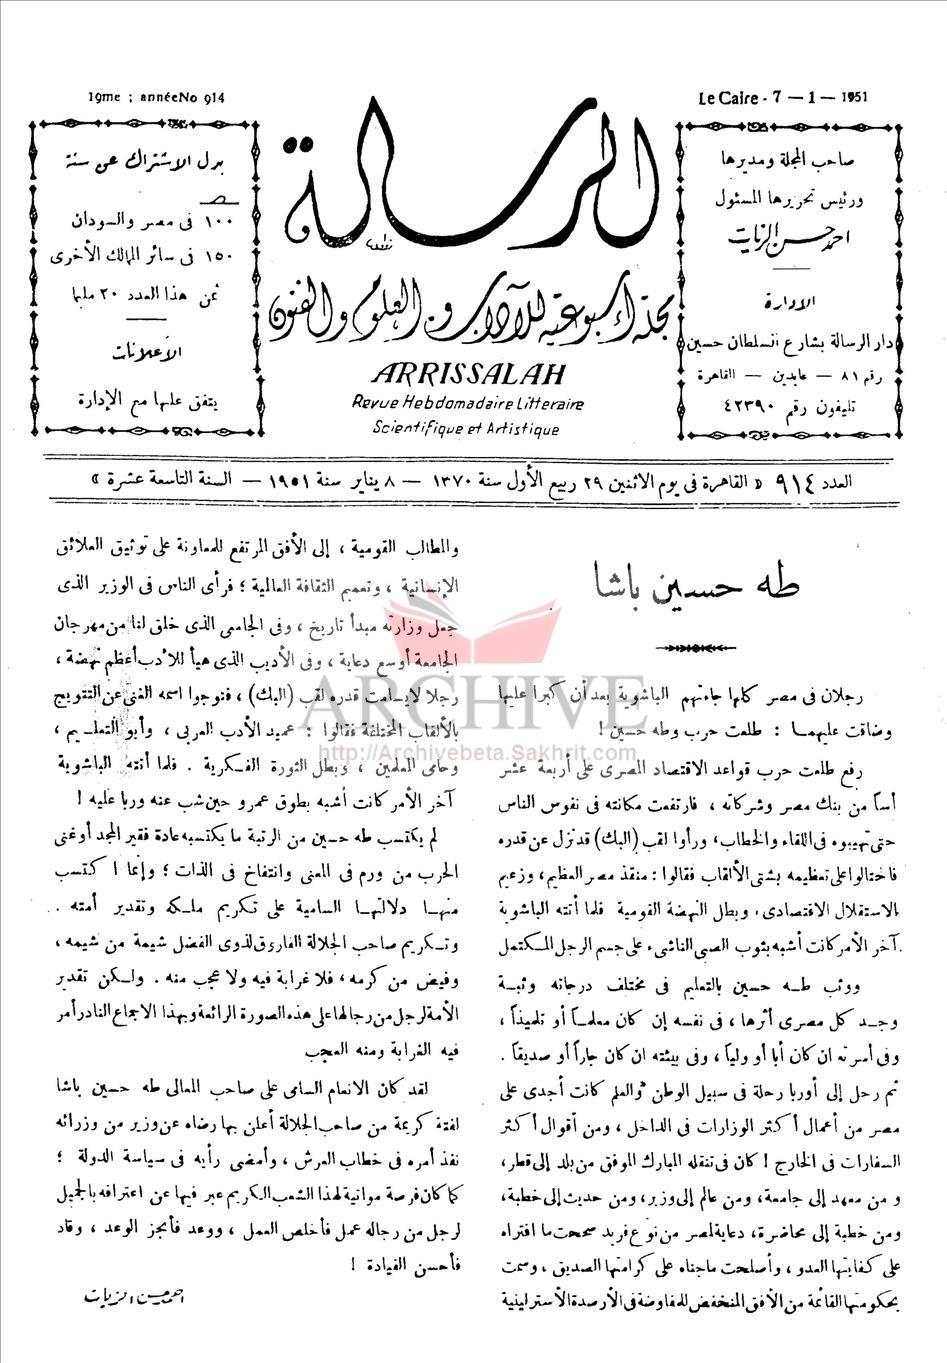 19me ; annéeNo 914
Le Caire - 7 — 1 — 1951
صاحب المجلة ومديرها
ورئيس تحريرها المسئول
احمد حسن الزيات
الادارة
دار الرسالة بشارع السلطان حسين
رقم ٨١ — عابدين — القاهرة
تليفون رقم ٤٢٣٩٠
الرسالة
مجلة أسبوعية للآداب والعلوم والفنون
ARRISSALAH
Revue Hebdomadaire Litteraire
Scientifique et Artistique
بدل الاشتراك عن سنة
١٠٠ فى مصر والسودان
١٥٠ فى سائر الممالك الأخرى
ثمن هذا العدد ٢٠ مليما
الاعلانات
يتفق عليها مع الإدارة
العدد ٩١٤ « القاهرة فى يوم الاثنين ٢٩ ربيع الأول سنة ١٣٧٠ — ٨ يناير سنة ١٩٥١ — السنة التاسعة عشرة »
طه حسين باشا
رجلان فى مصر كلها جاءتهم الباشوية بعد أن كبرا عليها
وضاقت عليهما : طلعت حرب وطه حسين !
رفع طلعت حرب قواعد الاقتصاد المصرى على أربعة عشر
أسا من بنك مصر وشركاته ، فارتفعت مكانته فى نفوس الناس
حتى تهيبوه فى اللقاء والخطاب، ورأوا لقب (البك) قد نزل عن قدره
فاحتالوا على تعظيمه بشتى الألقاب فقالوا : منقذ مصر العظيم، وزعيم
الاستقلال الاقتصادى، وبطل النهضة القومية فلما أتته الباشوية
آخر الأمر كانت أشبه بثوب الصبى الناشىء على جسم الرجل المكتمل
ووثب طه حسين بالتعليم فى مختلف درجاته وثبة
وجد كل مصرى أثرها ، فى نفسه إن كان معلماً أو تلميذاً ،
وفى أسرته ان كان أبا أو وليا ، وفى بيئته ان كان جاراً أو صديقاً .
ثم رحل إلى أوربا رحلة فى سبيل الوطن والعلم كانت أجدى على
مصر من أعمال أكثر الوزارات فى الداخل ، ومن أقوال أكثر
السفارات فى الخارج ! كان فى تنقله المبارك الموفق من بلد إلى قطر،
ومن معهد إلى جامعة، ومن عالم إلى وزير، ومن حديث إلى خطبة،
ومن خطبة إلى محاضرة، دعاية لمصر من نوع فريد صححت ما افتراه
على كفايتها العدو ، وأصلحت ما جناه على كرامتها الصديق ، وسمت
بحكومتها القائمة من الأفق المنخفض للمفاوضة فى الأرصدة الأسترلينية
والمطالب القومية ، إلى الأفق المرتفع للمعاونة على توثيق العلائق
الإنسانية ، وتعميم الثقافة العالمية ؛ فرأى الناس فى الوزير الذى
جعل وزارته مبدأ تاريخ ، وفى الجامعى الذى خلق لنا من مهرجان
الجامعة أوسع دعاية ، وفى الأديب الذى هيأ للأدب أعظم نهضة ،
رجلا لا يسامت قدره لقب (البك) ، فتوجوا اسمه الغنى عن التتويج
بالألقاب المختلفة فقالوا : عميد الأدب العربى ، وأبو التعليم ،
وحامى المعلمين ، وبطل الثورة الفكرية . فلما أتته الباشوية
آخر الأمر كانت أشبه بطوق عمرو حين شب عنه وربا عليه !
لم يكتسب طه حسين من الرتبة ما يكتسبه عادة فقير المجد أو غنى
الحرب من ورم فى المعنى وانتفاخ فى الذات ؛ وإنما اكتسب
منها دلالتها السامية على تكريم ملكه وتقدير أمته .
وتكريم صاحب الجلالة الفاروق لذوى الفضل شيمة من شيمه ،
وفيض من كرمه ، فلا غرابة فيه ولا عجب منه . ولكن تقدير
الأمة لرجل من رجالها على هذه الصورة الرائعة وبهذا الاجماع النادر أمر
فيه الغرابة ومنه العجب
لقد كان الانعام السامى على صاحب المعالى طه حسين باشا
لفتة كريمة من صاحب الجلالة أعلن بها رضاه عن وزير من وزرائه
نفذ أمره فى خطاب العرش ، وأمضى رأيه فى سياسة الدولة ؛
كما كان فرصة مواتية لهذا الشعب الكريم عبر فيها عن اعترافه بالجميل
لرجل من رجاله عمل فأخلص العمل ، ووعد فأنجز الوعد ، وقاد
فأحسن القيادة !
احمد حسن الزيات
ARCHIVE
http://Archivebeta.Sakhrit.com